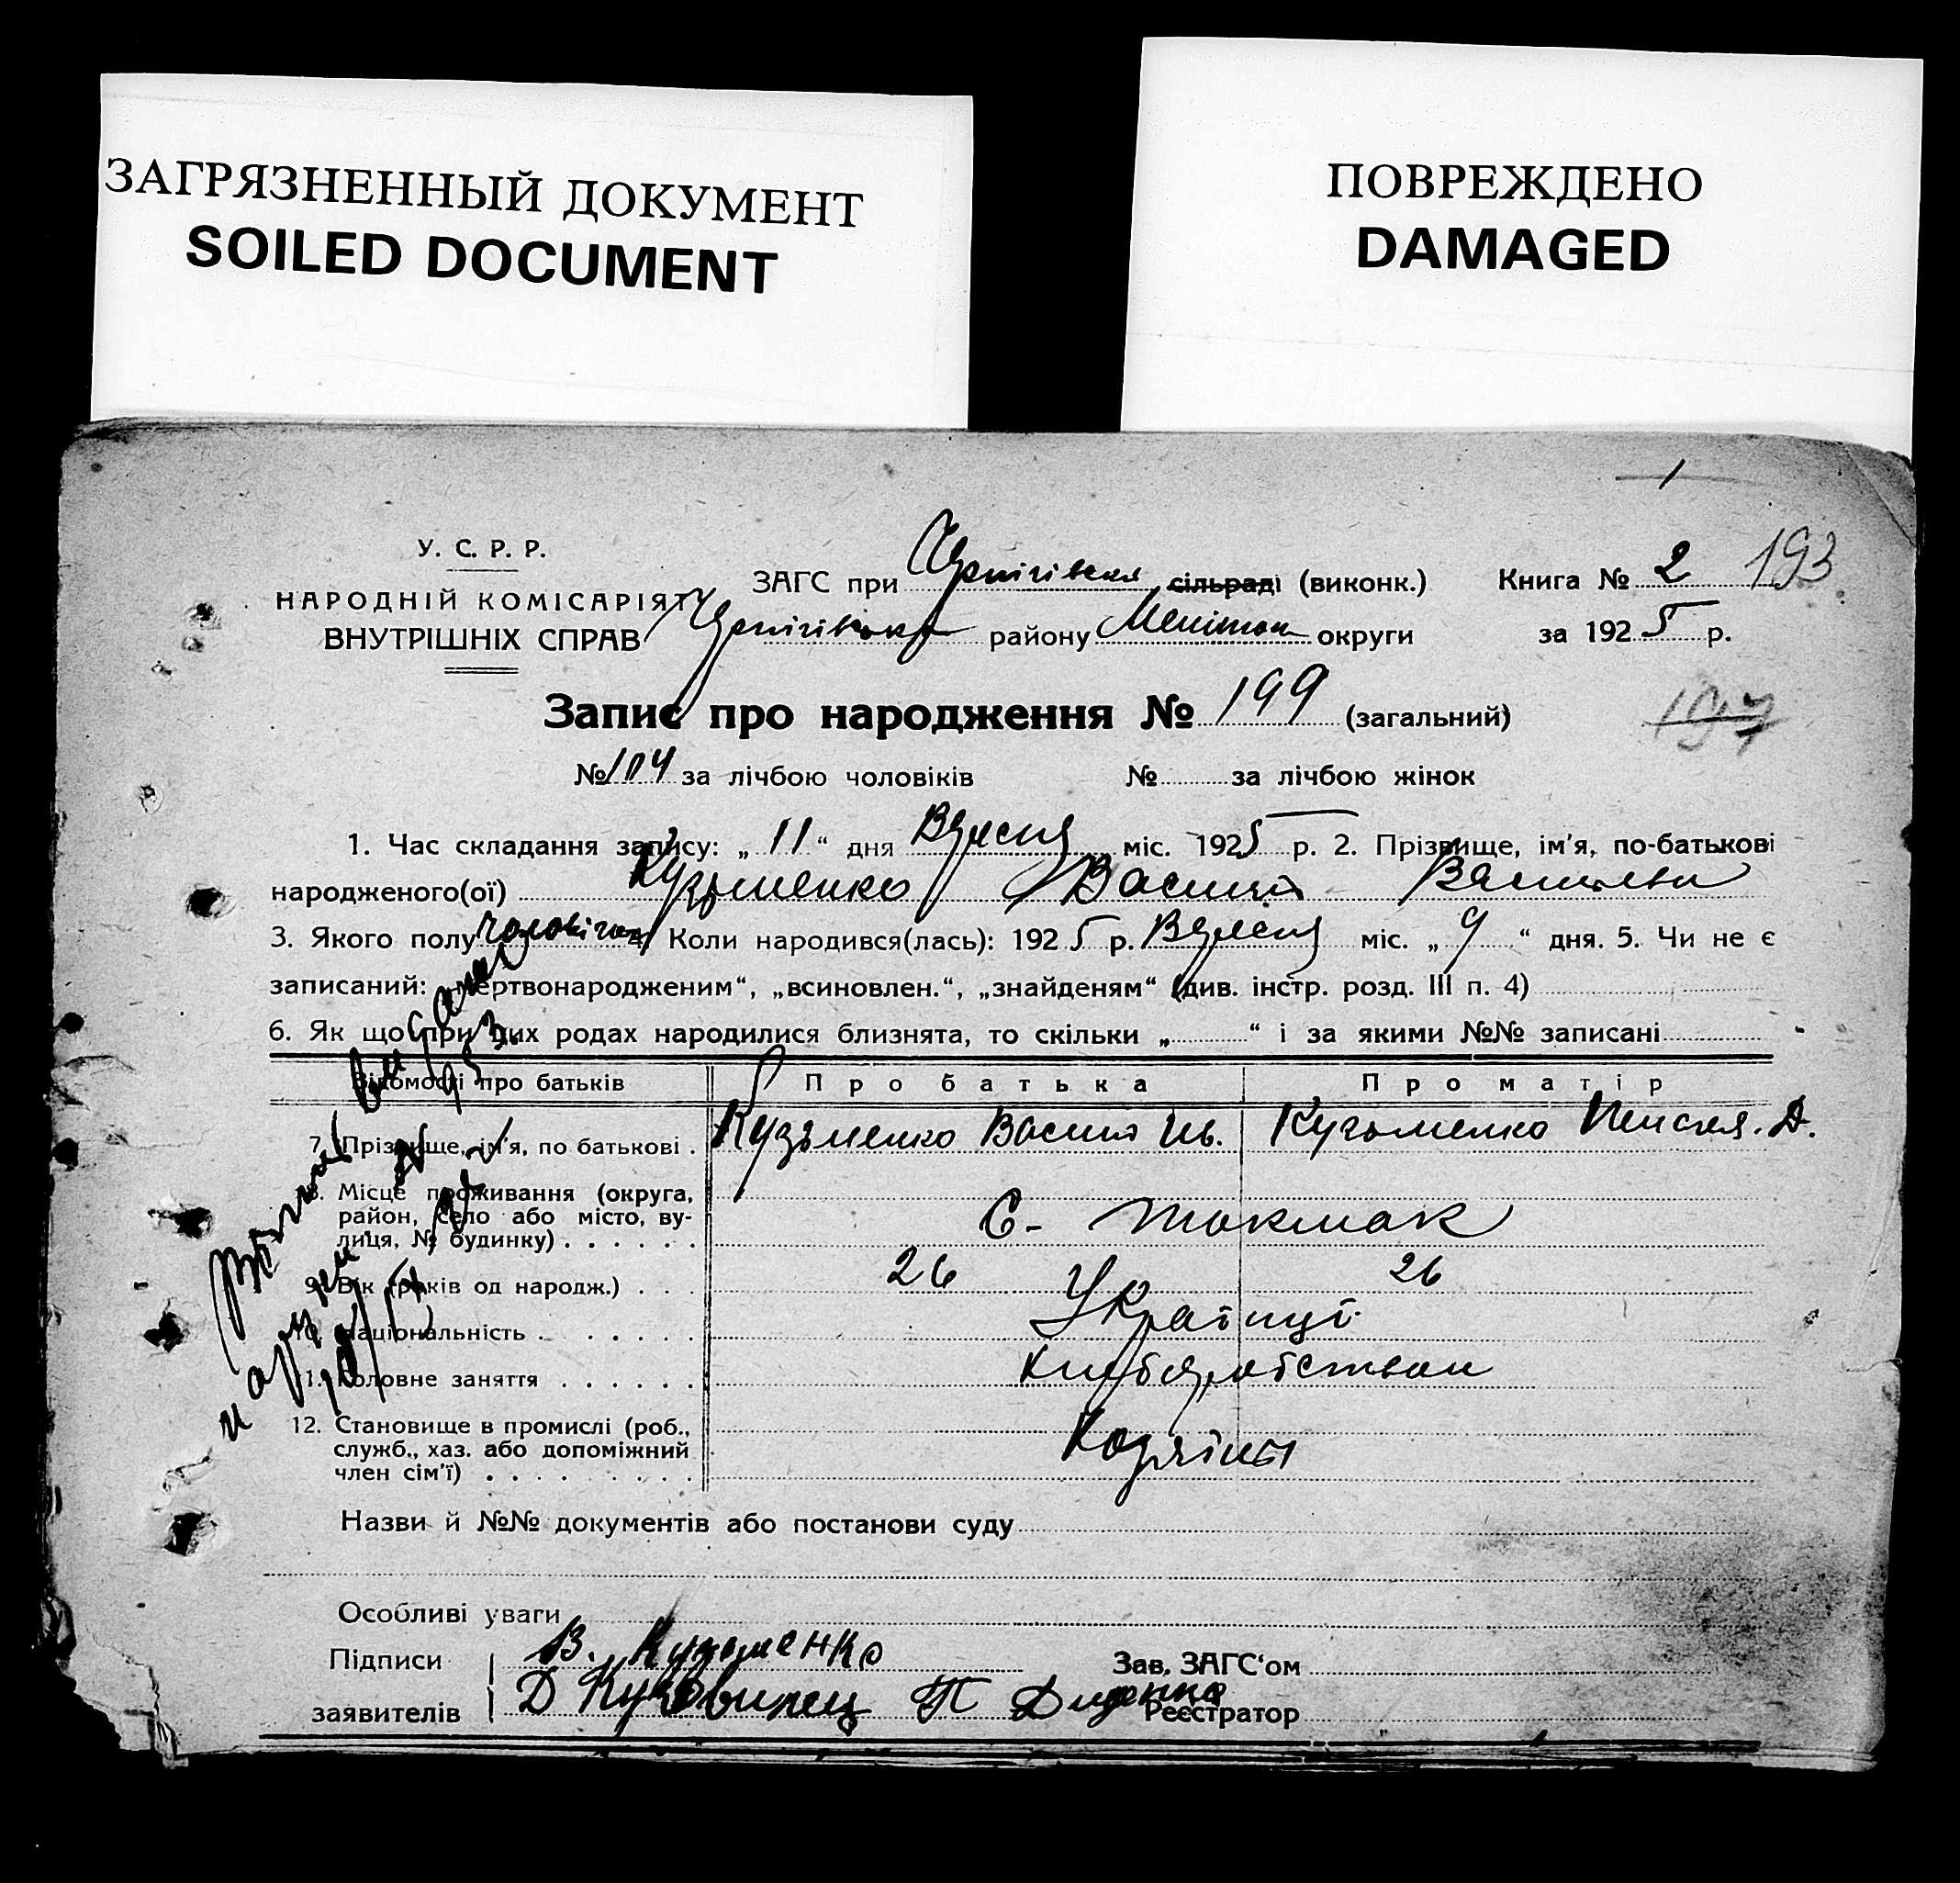 ЗАГРЯЗНЕННЫЙ ДОКУМЕНТ
SOILED DOCUMENT
ПОВРЕЖДЕНО
DAMAGED
1
У. С. Р. Р.
НАРОДНІЙ КОМІСАРІЯТ
ВНУТРІШНІХ СПРАВ
ЗАГС при сільраді (виконк.) Книга № 2 193
району округи за 1925 р.
Запис про народження № 199 (загальний) 197
№ 104 за лічбою чоловіків № за лічбою жінок
1. Час складання запису: „ 11 “ дня Вересня міс. 1925 р. 2. Прізвище, ім'я, по-батькові
народженого(ої) Кузьменко
3. Якого полу 4. Коли народився(лась): 1925 р. Вересня міс. „ 9 “ дня. 5. Чи не є
записаний: „мертвонародженим“, „всиновлен.“, „знайденям“ (див. інстр. розд. III п. 4)
6. Як що при цих родах народилися близнята, то скільки „ “ і за якими №№ записані
Відомості про батьків Про батька Про матір
7. Прізвище, ім'я, по батькові . Кузьменко Василь Ив. Кузьменко
8. Місце проживання (округа,
район, село або місто, ву-
лиця, № будинку) . . . . . . С- Токмак
9. Вік (років од народж.) . . . 26 26
10. Національність . . . . . . Українці
11. Головне заняття . . . . . .
12. Становище в промислі (роб.,
служб., хаз. або допоміжний
член сім'ї) . . . . . . . .
Назви й №№ документів або постанови суду
Особливі уваги
Підписи В. Кузьменко Зав. ЗАГС'ом
заявителів Д Реєстратор